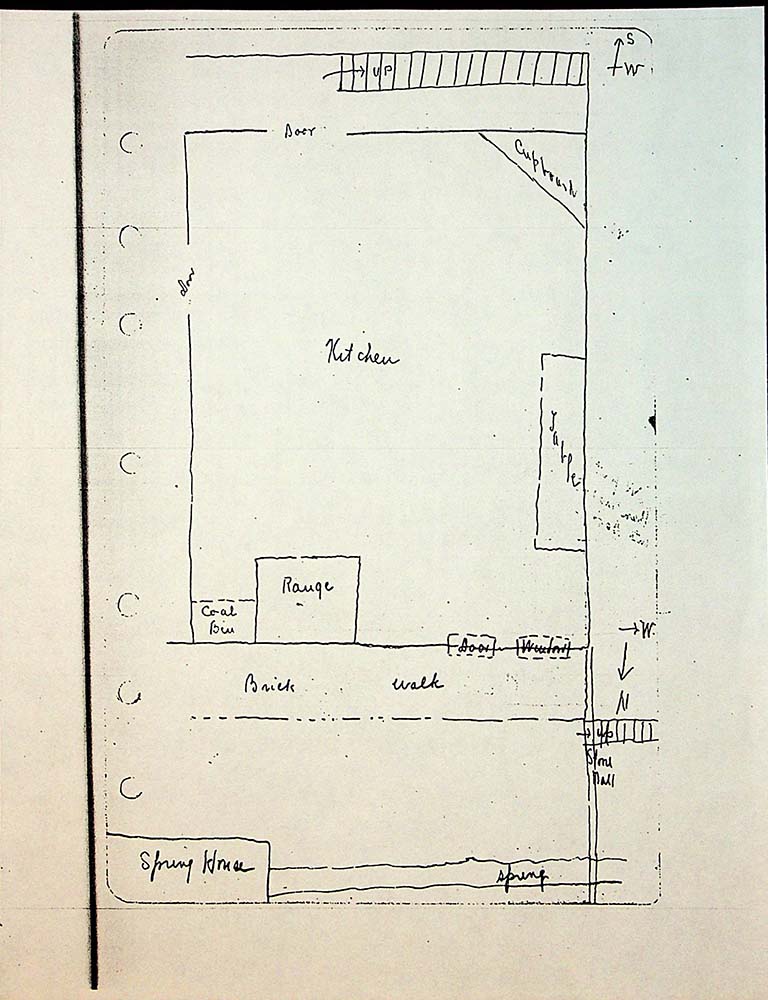 S
→ W
→ UP
Door
Cupboard
Door
Kitchen
Table
Range
Coal
Bin
Door
Window
→ W.
N
Brick walk
→ UP
Stone
Wall
Spring House
spring